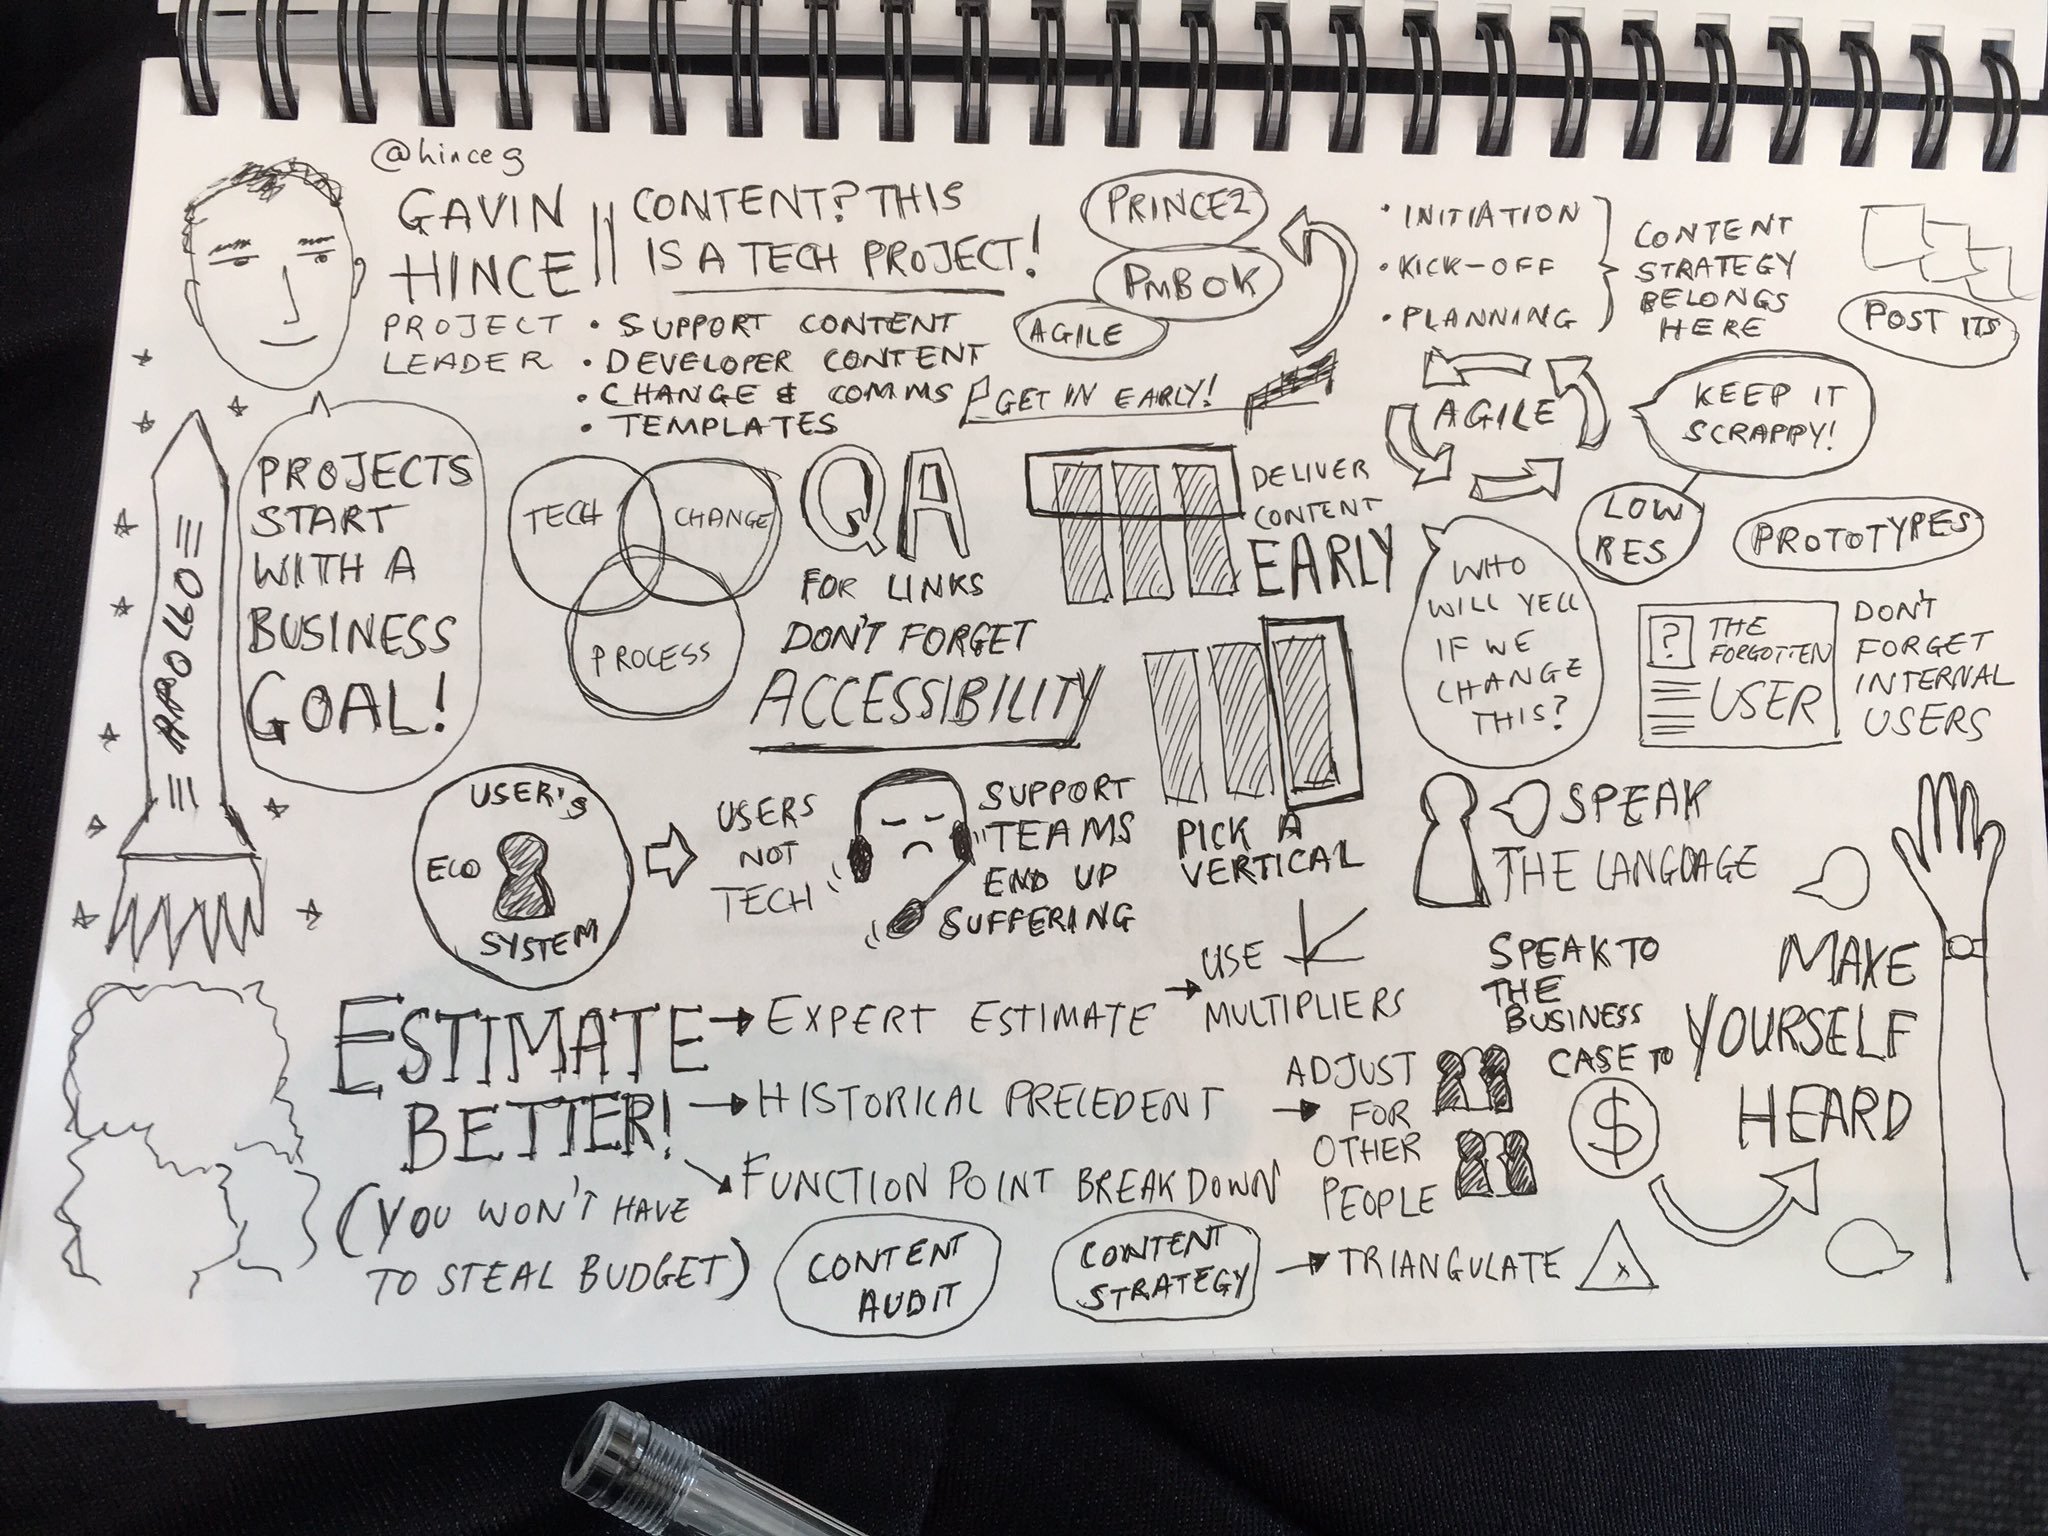 @hinceg
GAVIN
HINCE
PROJECT
LEADER
CONTENT? THIS
IS A TECH PROJECT!
• SUPPORT CONTENT
• DEVELOPER CONTENT
• CHANGE & COMMS
• TEMPLATES
GET IN EARLY!
PRINCE2
PMBOK
AGILE
• INITIATION
• KICK-OFF
• PLANNING
CONTENT
STRATEGY
BELONGS
HERE
POST ITS
AGILE
KEEP IT
SCRAPPY!
LOW
RES
PROTOTYPES
APOLLO
PROJECTS
START
WITH A
BUSINESS
GOAL!
TECH
CHANGE
PROCESS
QA
FOR LINKS
DON'T FORGET
ACCESSIBILITY
DELIVER
CONTENT
EARLY
PICK A
VERTICAL
WHO
WILL YELL
IF WE
CHANGE
THIS?
?
THE
FORGOTTEN
USER
DON'T
FORGET
INTERNAL
USERS
USER'S
ECO
SYSTEM
USERS
NOT
TECH
SUPPORT
TEAMS
END UP
SUFFERING
SPEAK
THE LANGUAGE
SPEAK TO
THE
BUSINESS
CASE TO
$
MAKE
YOURSELF
HEARD
ESTIMATE
BETTER!
(YOU WON'T HAVE
TO STEAL BUDGET)
EXPERT ESTIMATE
USE
MULTIPLIERS
HISTORICAL PRECEDENT
ADJUST
FOR
OTHER
PEOPLE
FUNCTION POINT BREAKDOWN
CONTENT
AUDIT
CONTENT
STRATEGY
TRIANGULATE
x